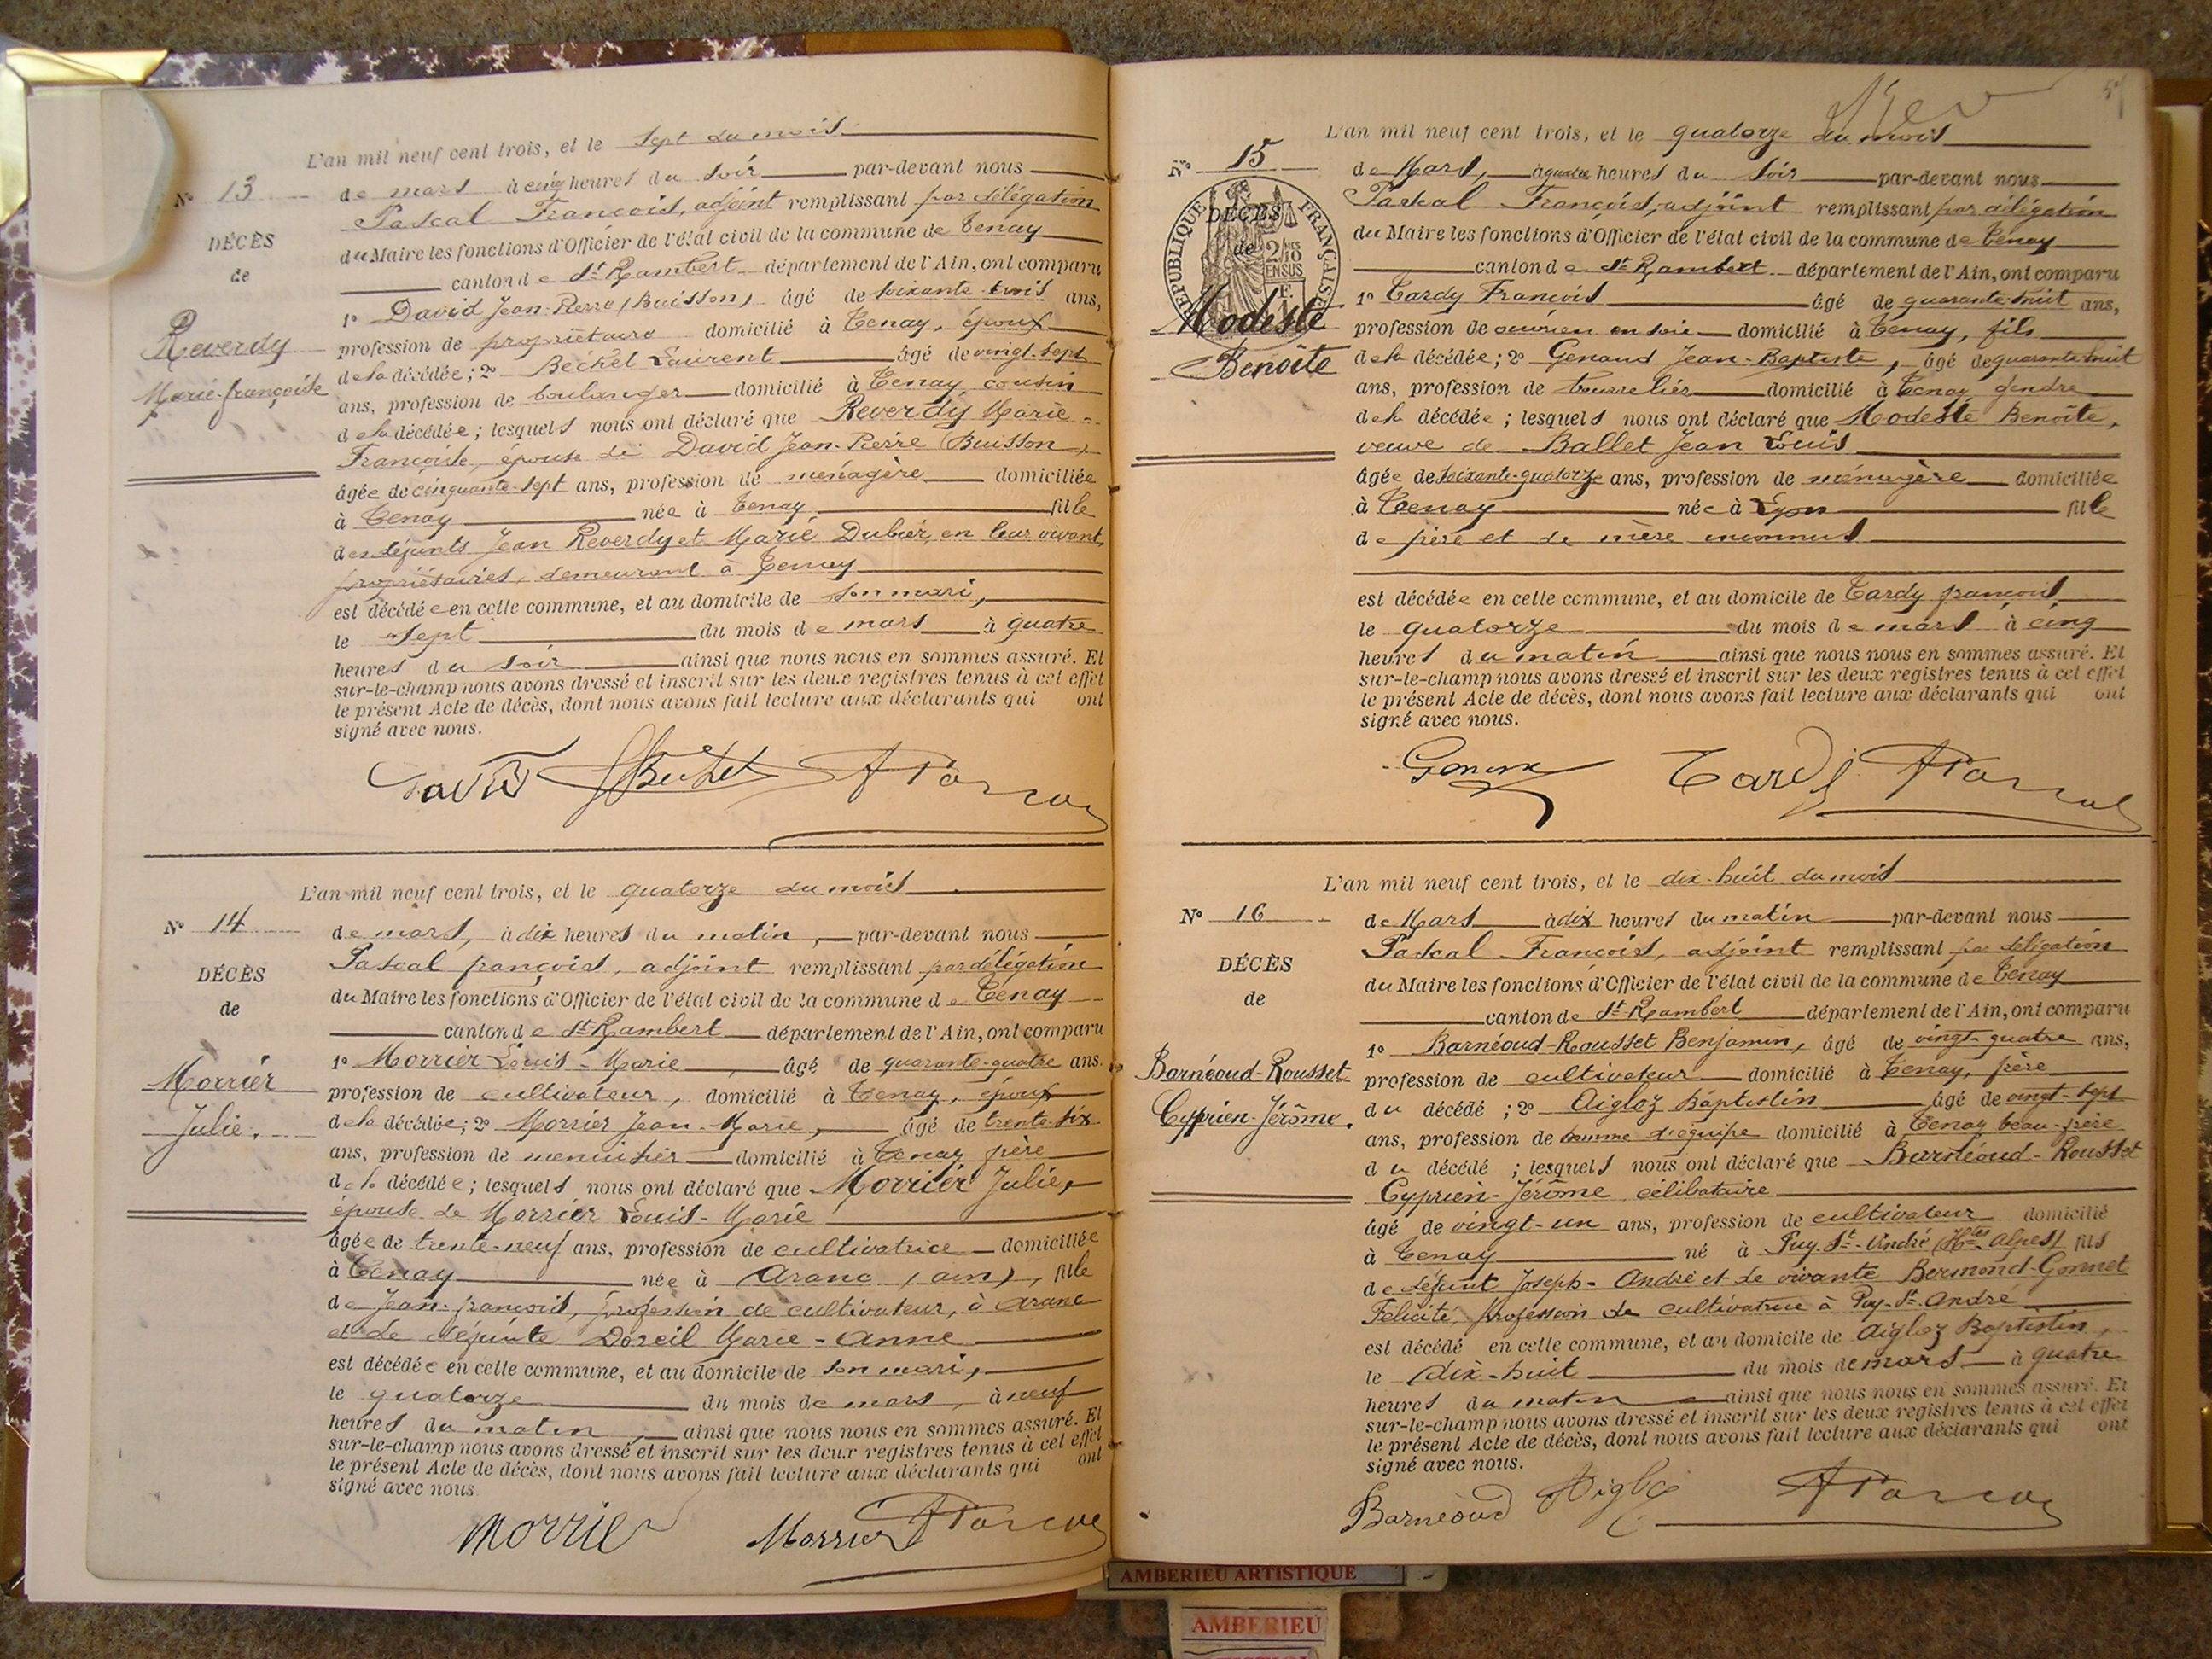 L'an mil neuf cent trois, et le sept du mois
N° 13
de mars à cinq heures du soir par-devant nous
Pascal François, adjoint remplissant par délégation
DÉCÈS
du Maire les fonctions d'Officier de l'état civil de la commune de Tenay
de
canton de St Rambert département de l'Ain, ont comparu
1° David Jean-Pierre (Buisson) âgé de soixante trois ans,
Reverdy
profession de propriétaire domicilié à Tenay, époux
de la décédée; 2° Bechet Laurent âgé de vingt-sept
Marie-françoise
ans, profession de boulanger domicilié à Tenay cousin
de la décédée; lesquels nous ont déclaré que Reverdy Marie-
Françoise, épouse de David Jean-Pierre (Buisson)
âgée de cinquante-sept ans, profession de ménagère domiciliée
à Tenay née à Tenay fille
des défunts Jean Reverdy et Marie Dubier, en leur vivant,
propriétaires, demeurant à Tenay
est décédée en cette commune, et au domicile de son mari,
le sept du mois de mars à quatre
heures du soir ainsi que nous nous en sommes assuré. Et
sur-le-champ nous avons dressé et inscrit sur les deux registres tenus à cet effet
le présent Acte de décès, dont nous avons fait lecture aux déclarants qui ont
signé avec nous.
David Bechet Pascal
L'an mil neuf cent trois, et le quatorze du mois
N° 14
de mars, à dix heures du matin, par-devant nous
Pascal françois, adjoint remplissant par délégation
DÉCÈS
du Maire les fonctions d'Officier de l'état civil de la commune de Tenay
de
canton de St Rambert département de l'Ain, ont comparu
1° Morrier Louis-Marie, âgé de quarante-quatre ans.
Morrier
profession de cultivateur, domicilié à Tenay, époux
Julie.
de la décédée; 2° Morrier Jean-Marie, âgé de trente-six
ans, profession de menuisier domicilié à Tenay frère
de la décédée; lesquels nous ont déclaré que Morrier Julie,
épouse de Morrier Louis-Marie
âgée de trente-neuf ans, profession de cultivatrice domiciliée
à Tenay née à Aranc (ain), fille
de Jean-françois, profession de cultivateur, à Aranc
et de défunte Doreil Marie-Anne
est décédée en cette commune, et au domicile de son mari,
le quatorze du mois de mars, à neuf
heures du matin, ainsi que nous nous en sommes assuré. Et
sur-le-champ nous avons dressé et inscrit sur les deux registres tenus à cet effet
le présent Acte de décès, dont nous avons fait lecture aux déclarants qui ont
signé avec nous
Morrier Morrier Pascal
L'an mil neuf cent trois, et le quatorze du mois
N° 15
de Mars, à quatre heures du soir par-devant nous
Pascal François, adjoint remplissant par délégation
RÉPUBLIQUE FRANÇAISE
DÉCÈS
de
2/10 EN SUS
du Maire les fonctions d'Officier de l'état civil de la commune de Tenay
canton de St Rambert département de l'Ain, ont comparu
1° Tardy François âgé de quarante-huit ans,
Modeste
profession de ouvrier en soie domicilié à Tenay, fils
Benoîte
de la décédée; 2° Genaud Jean-Baptiste, âgé de quarante huit
ans, profession de bourrelier domicilié à Tenay gendre
de la décédée; lesquels nous ont déclaré que Modeste Benoîte,
veuve de Ballet Jean Louis
âgée de soixante-quatorze ans, profession de ménagère domiciliée
à Tenay née à Lyon fille
de père et de mère inconnus
est décédée en cette commune, et au domicile de Tardy françois
le quatorze du mois de mars à cinq
heures du matin ainsi que nous nous en sommes assuré. Et
sur-le-champ nous avons dressé et inscrit sur les deux registres tenus à cet effet
le présent Acte de décès, dont nous avons fait lecture aux déclarants qui ont
signé avec nous.
Tardy Pascal
L'an mil neuf cent trois, et le dix-huit du mois
N° 16
de Mars à dix heures du matin par-devant nous
Pascal François, adjoint remplissant par délégation
DÉCÈS
du Maire les fonctions d'Officier de l'état civil de la commune de Tenay
de
canton de St-Rambert département de l'Ain, ont comparu
1° Barnéoud-Rousset Benjamin, âgé de vingt-quatre ans,
Barnéoud-Rousset
profession de cultivateur domicilié à Tenay, frère
Cyprien-Jérôme.
du décédé; 2° Aigloz Baptistin âgé de vingt-sept
ans, profession de homme d'équipe domicilié à Tenay beau-frère
du décédé; lesquels nous ont déclaré que Barnéoud-Rousset
Cyprien-Jérôme, célibataire
âgé de vingt-un ans, profession de cultivateur domicilié
à Tenay né à Puy-St-André (Htes Alpes) fils
de défunt Joseph-André et de vivante Bermond-Gonnet
Félicité, profession de cultivatrice à Puy-St-André
est décédé en cette commune, et au domicile de Aigloz Baptistin,
le dix-huit du mois de mars à quatre
heures du matin ainsi que nous nous en sommes assuré. Et
sur-le-champ nous avons dressé et inscrit sur les deux registres tenus à cet effet
le présent Acte de décès, dont nous avons fait lecture aux déclarants qui ont
signé avec nous.
Barnéoud Aigloz Pascal
AMBERIEU ARTISTIQUE
AMBERIEU